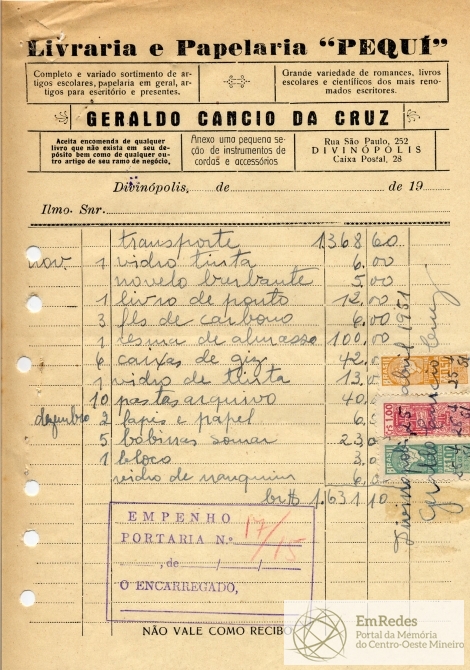 Livraria e Papelaria "PEQUÍ"
Completo e variado sortimento de ar-
tigos escolares, papelaria em geral, ar-
tigos para escritório e presentes.
Grande variedade de romances, livros
escolares e científicos dos mais reno-
mados escritores.
GERALDO CANCIO DA CRUZ
Aceita encomenda de qualquer
livro que não exista em seu de-
pósito bem como de qualquer ou-
tro artigo de seu ramo de negócio.
Anexo uma pequena se-
ção de instrumentos de
cordas e accessórios
Rua São Paulo, 252
DIVINÓPOLIS
Caixa Postal, 28
Divinópolis, de de 19
Ilmo. Snr.
transporte 1.368,60
nov. 1 vidro tinta 6,00
novelo barbante 5,00
1 livro de ponto 12,00
3 fls de carbono 6,00
1 resma de almasso 100,00
6 caixas de giz 42,00
1 vidro de tinta 13,0
10 pastas arquivo 40,0
dezembro 2 lapis e papel 6,5
5 bobinas somar 23,0
1 bloco 3,0
vidro de nanquim 6,0
cr$ 1.631,10
EMPENHO
PORTARIA N.º 17/15
, de / /
O ENCARREGADO,
NÃO VALE COMO RECIBO
25 abril 1951
EmRedes
Portal da Memória
do Centro-Oeste Mineiro